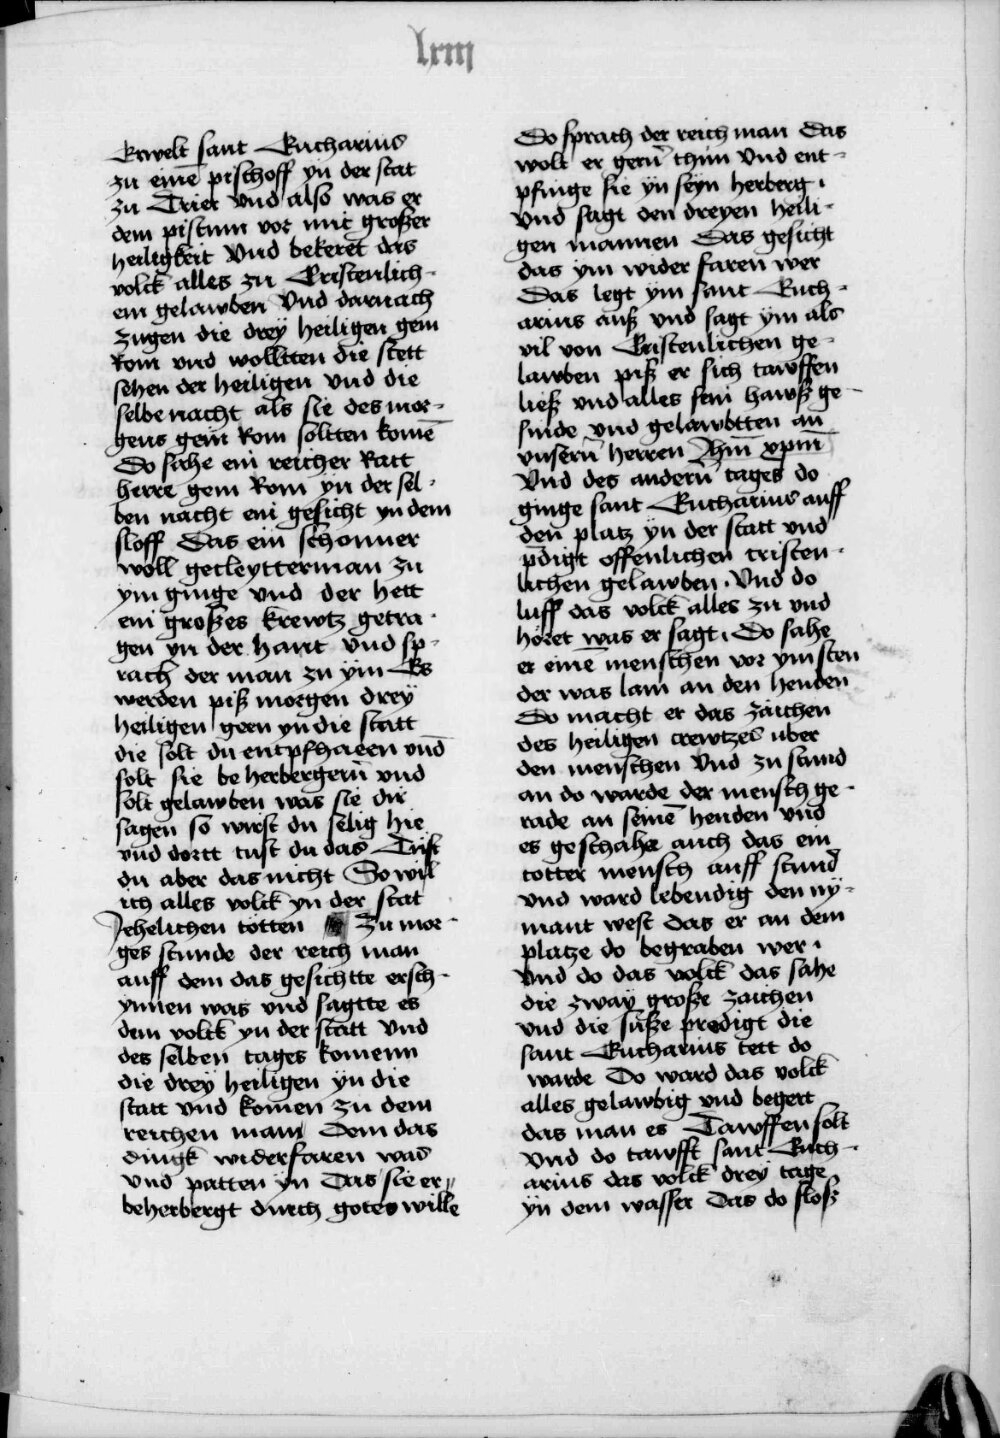 lxiij
Erwelt sant Eucharius
zu einē pischoff yn der stat
zu Trier vnd also was er
dem pistum vor mit großer
heiligkeit vnd bekeret das
volck alles zu Cristenlich-
em gelawben vnd darnach
zugen die drey heiligen gem
Rom vnd wolltten die stett
sehen der heiligen vnd die
selbe nacht als sie des mor-
gens gem Rom soltten komē
Do sahe ein reicher Ratt
herre gem Rom yn der sel-
ben nacht ein gesicht yn dem
sloff Das ein schonner
woll gecleytterman zu
ym ginge vnd der hett
ein großes krewtz getra-
gen yn der hant vnd sp-
rach der man zu ym Es
werden piß morgen drey
heiligen geen yn die statt
die solt du entpfhaeen vnd
solt sie beherbergerñ vnd
solt gelawben was sie dir
sagen so wirst du selig hie
vnd dortt tust du das Tust
du aber das nicht So wil
ich alles volck yn der stat
Jehelichen totten Zu mor-
ges stunde der reich man
auff dem das gesichtte ersch-
ynnen was vnd sagtte es
dem volck yn der statt vnd
des selben tages komenn
die drey heiligen yn die
statt vnd komen zu dem
reichen mann Dem das
dingk widerfaren was
vnd patten yn Das sie er
beherbergt durch gotes wille
Do sprach der reich man Das
wolt er gerñ thun vnd ent-
pfinge sie yn seyn herberg
vnd sagt den dreyen heili-
gen mannen Das gesicht
das ym wider faren wer
Das legt ym sant Euch-
arius auß vnd sagt ym als
vil von Cristenlichen ge-
lawben piß er sich tawffen
ließ vnd alles sein hawß ge-
sinde vnd gelawbtten an
vnserñ herren Jhm̄ xpm̄
Vnd des anderñ tages do
ginge sant Eucharius auff
den platz yn der statt vnd
p̄digt offenlichen cristen-
lichen gelawben. Vnd do
luff das volck alles zu vnd
höret was er sagt. Do sahe
er einē menschen vor ym sten
der was lam an den henden
Do macht er das zaichen
des heiligen crewtzes uber
den menschen Vnd zu stund
an do warde der mensch ge-
rade an seinē henden vnd
es geschahe auch das ein
totter mensch auff stund
vnd ward lebendig den ny-
mant west das er an dem
platze do begraben wer.
Vnd do das volck das sahe
die zway große zaichen
vnd die süße predigt die
sant Eucharius tett do
warde Do ward das volck
alles gelawbig vnd begert
das man es Tawffen solt
Vnd do tawfft sant Euch-
arius das volck drey tage
yn dem wasser Das do floß